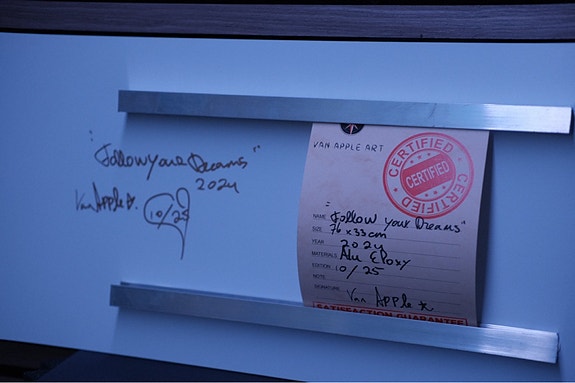 "Follow your Dreams"
2024
Van Apple
10/25
VAN APPLE ART
CERTIFIED
CERTIFIED
CERTIFIED
NAME "Follow your Dreams"
SIZE 76 x 33 cm
YEAR 2024
MATERIALS Alu Epoxy
EDITION 10/25
NOTE
SIGNATURE Van Apple
SATISFACTION GUARANTEE